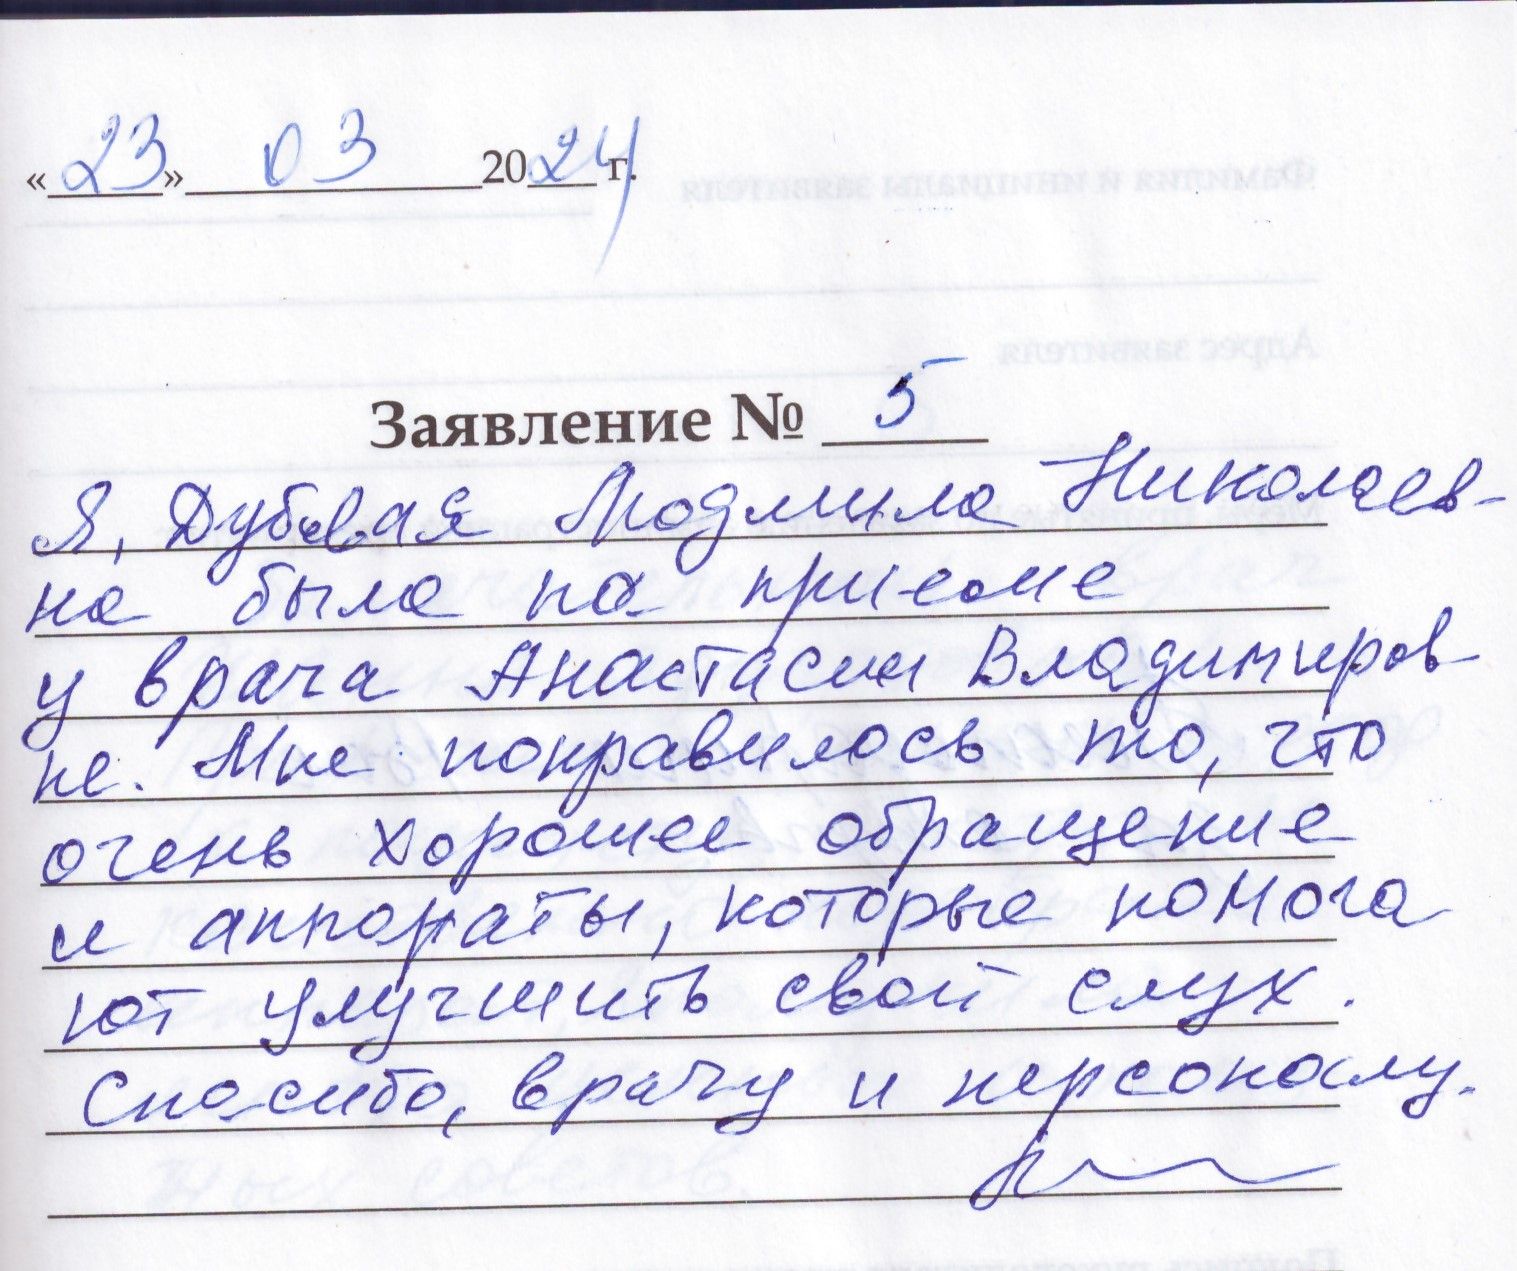 «23» 03 2024 г.
Заявление № 5
Я, Дубовая Людмила Николаев-
на была на приеме
у врача Анастасии Владимиров
не. Мне понравилось то, что
очень хорошее обращение
и аппораты, которые помога
ют улучшить свой слух.
Спасибо, врачу и персоналу.